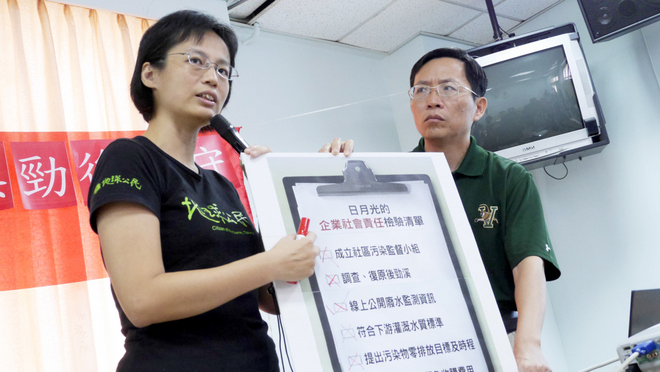 勁
地球公民
地球公民
日月光的
企業社會責任檢驗清單
成立社區污染監督小組
調查、復原後勁溪
線上公開廢水監測資訊
符合下游灌溉水質標準
提出污染物零排放目標及時程